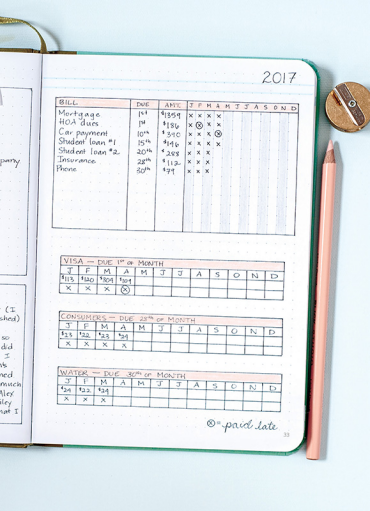 2017
BILL DUE AM'T. J F M A M J J A S O N D
Mortgage 1st $1359 x x x x
HOA dues 1st $186 x ⓧ x x
Car payment 10th $390 x x x ⓧ
Student loan #1 15th $146 x x x x
Student loan #2 20th $288 x x x
Insurance 28th $112 x x x
Phone 30th $79 x x x
VISA — DUE 1st OF MONTH
J F M A M J J A S O N D
$113 $120 $304
x x x ⓧ
CONSUMERS — DUE 25th OF MONTH
J F M A M J J A S O N D
$23 $22 $23 $24
x x x x
WATER — DUE 30th OF MONTH
J F M A M J J A S O N D
$24 $22 $24
x x x
ⓧ = paid late
33
pany
(I
shed)
so
did
I
ned
much
Alex
iley
hat I